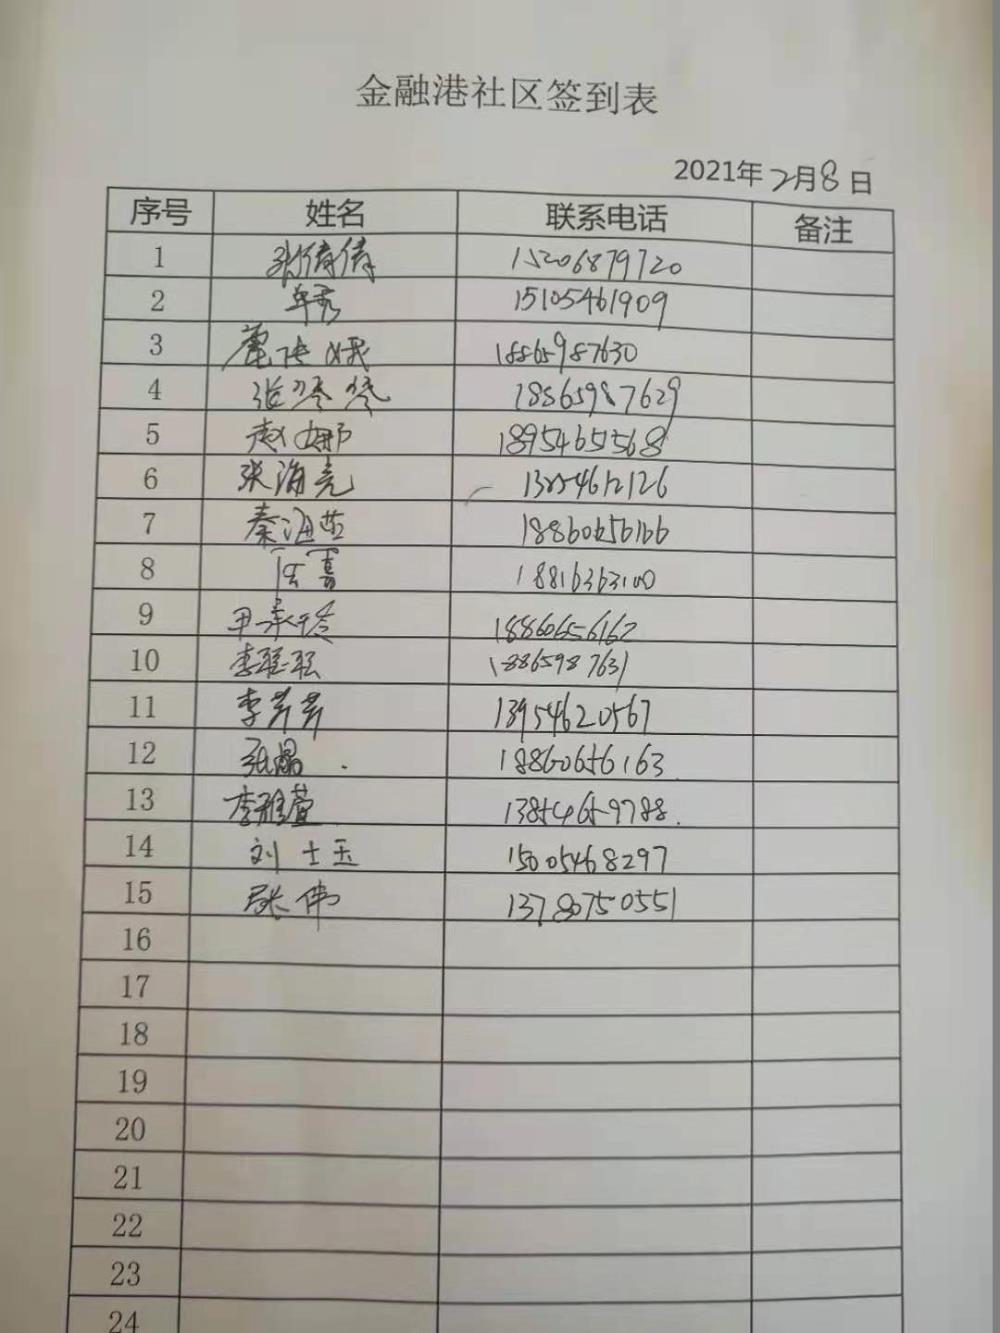 金融港社区签到表
2021年2月8日
序号 姓名 联系电话 备注
1 张倩倩 15206879720
2 15105461909
3 18865987630
4 张琴琴 18865987629
5 赵娜 18954651568
6 张海亮 13854612126
7 秦海燕 18860656166
8 18816363100
9 18860656162
10 18865987631
11 李芹芹 13954620567
12 张晶 18860656163
13 李雅萱 13854659788
14 刘士玉 15005468297
15 张伟 13780750551
16
17
18
19
20
21
22
23
24